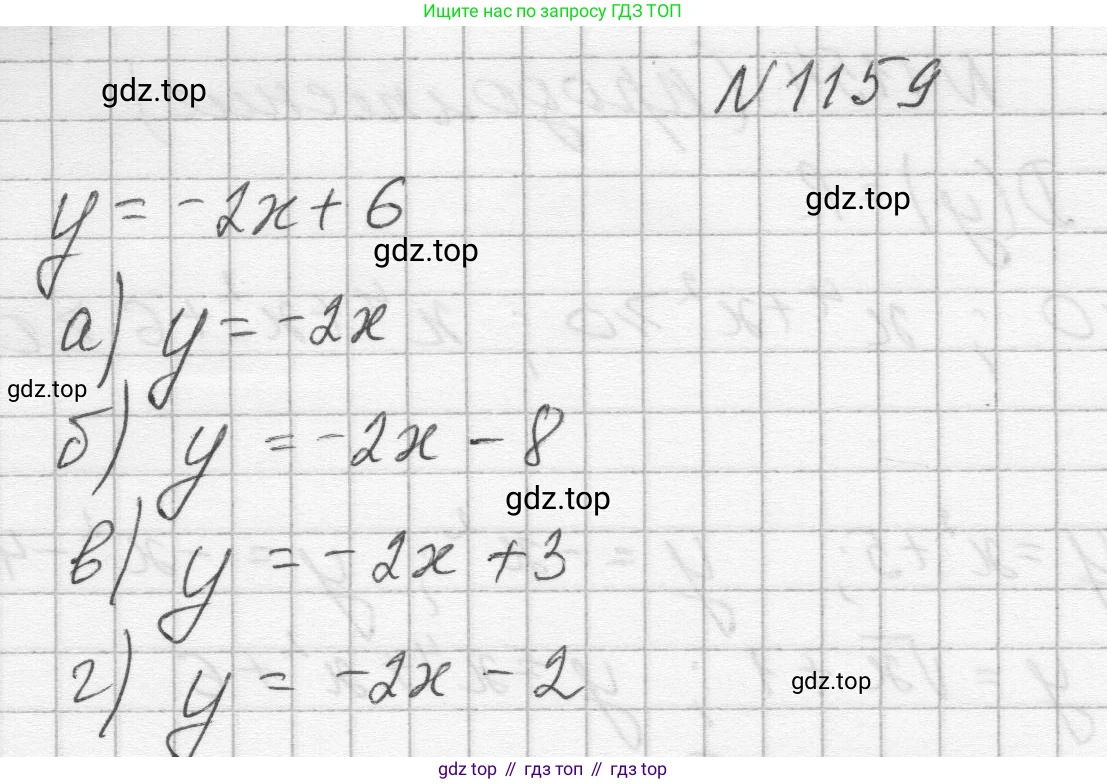 Ищите нас по запросу ГДЗ ТОП
gdz.top
N 1159
y = -2x + 6
gdz.top
gdz.top
а) y = -2x
gdz.top
б) y = -2x - 8
gdz.top
в) y = -2x + 3
г) y = -2x - 2
gdz.top
gdz top // гдз топ // гдз top